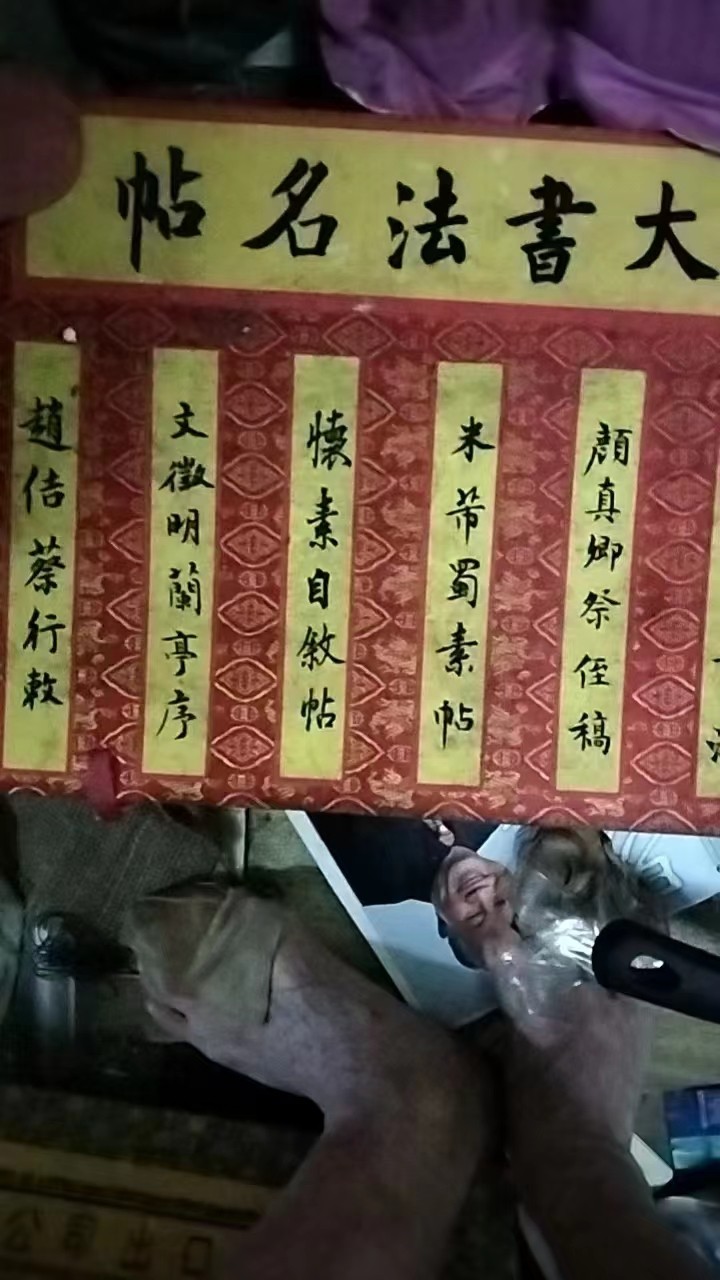 大書法名帖
顏真卿祭侄稿
米芾蜀素帖
懷素自敘帖
文徵明蘭亭序
趙佶蔡行敕
公司出口